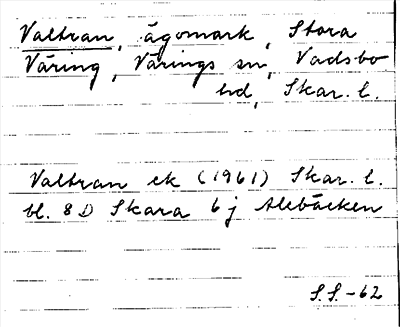 Valtran, ägomark, Stora
Väring, Värings sn, Vadsbo
hd, Skar. l.
Valtran ek (1961) Skar. l.
bl. 8 D Skara 6 j Alebäcken
S.S. -62